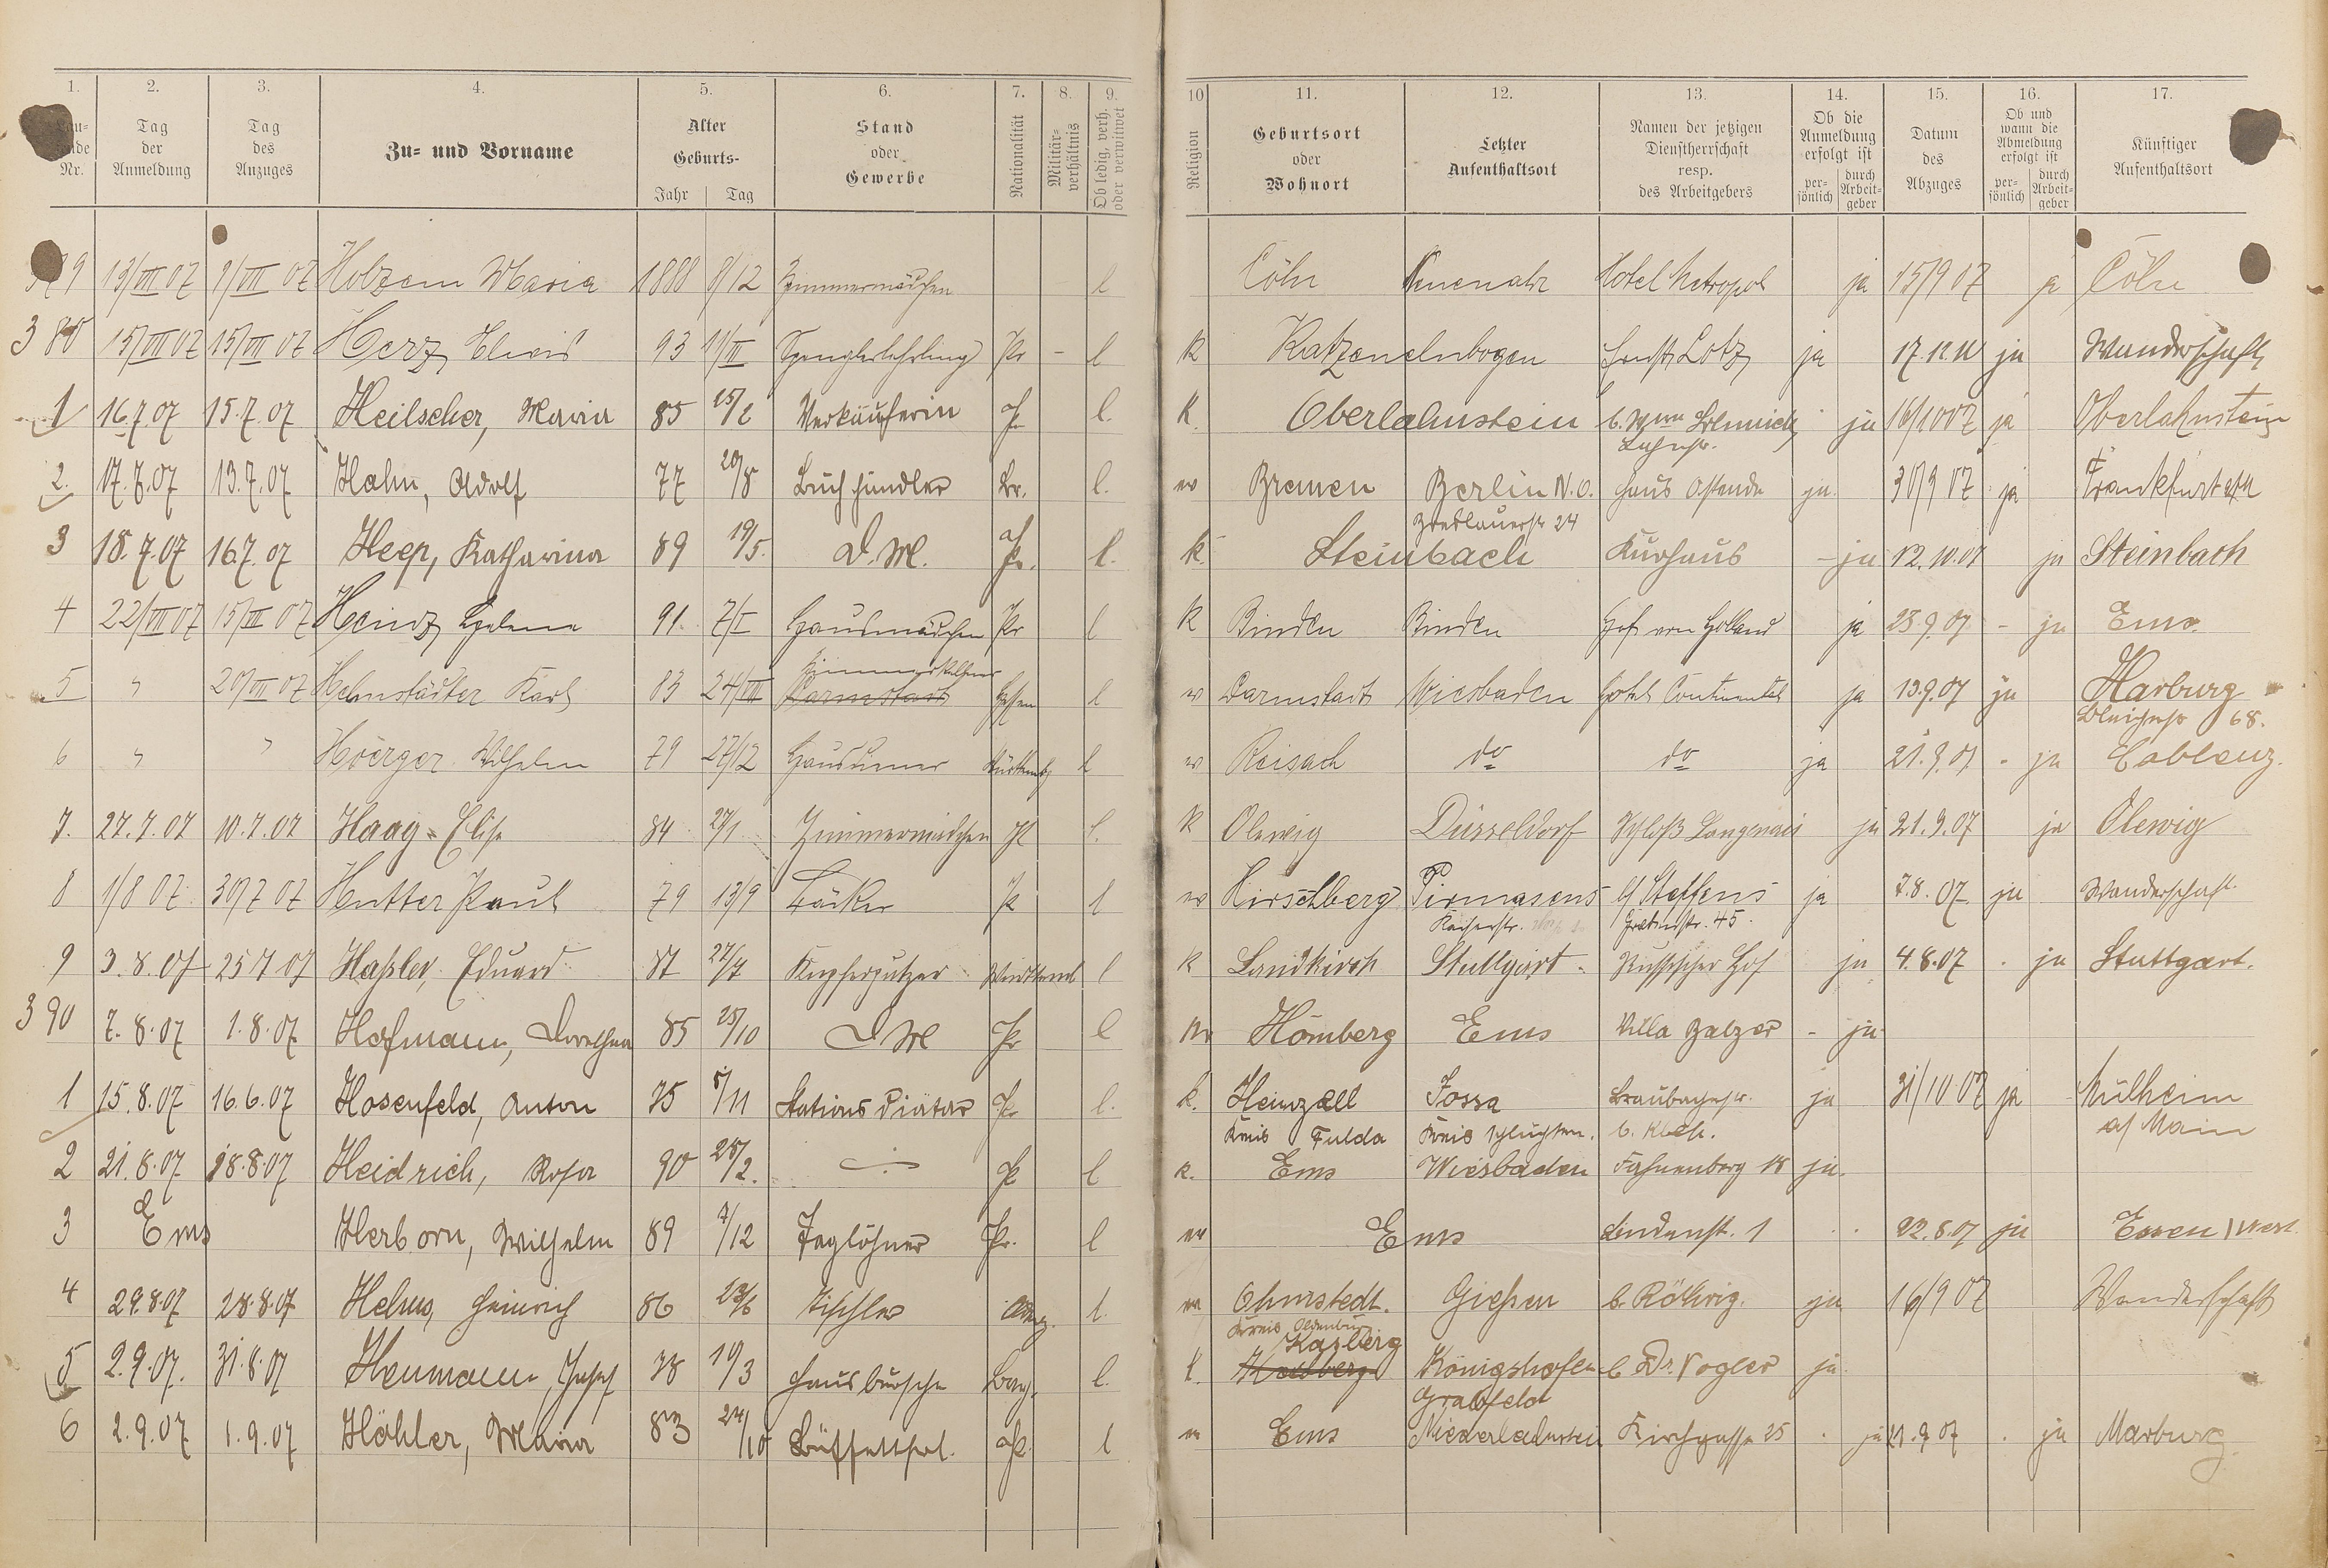 1. 2. 3. 4. 5. 6. 7. 8. 9. 10 11. 12. 13. 14. 15. 16. 17.
Nr.
Tag der Anmeldung
Tag des Anzuges
Zu- und Vorname
Alter Geburts- Jahr Tag
Stand oder Gewerbe
Nationalität
Militär-verhältnis
Ob ledig, verh. oder verwitwet
Religion
Geburtsort oder Wohnort
Letzter Aufenthaltsort
Namen der jetzigen Dienstherrschaft resp. des Arbeitgebers
Ob die Anmeldung erfolgt ist per-sönlich durch Arbeit-geber
Datum des Abzuges
Ob und wann die Abmeldung erfolgt ist per-sönlich durch Arbeit-geber
Künftiger Aufenthaltsort
79 13/VII 07 1/VII 07 Holzem Maria 1888 8/12 Zimmermädchen l Cöln Neuenahr Hotel Metropol ja 15/9 07 ja Cöln
380 15/VII 07 15/VII 07 Herz 93 11/II Spenglerlehrling Pr - l k Katzenelnbogen Ernst Lotz ja 17.12.11 ja Wanderschaft
1 16.7.07 15.7.07 Heilscher, Maria 85 15/2 Verkäuferin Pr. l. K. Oberlahnstein ja 16/10 07 ja Oberlahnstein
2. 17.7.07 13.7.07 Hahn, Adolf 77 20/8 Buchhändler Br. l. ev Bremen Berlin N.O. Haus Ostende ja. 30/9 07 ja Frankfurt a/M
24
3 18.7.07 16.7.07 Heep, Katharina 89 19/5. D.M. Pr. l. k. Steinbach Kurhaus - ja 12.10.07 ja Steinbach
4 22/VII 07 15/VII 07 Heinz Helene 91. 7/I Hausmädchen Pr l K Binden Binden Hof von Holland ja 28.9.07 - ja Ems.
5 " 20/VII 07 Helmstädter Karl 83 24/VIII Zimmerkellner Darmstadt Hessen l ev Darmstadt Wiesbaden Hotel Continental ja 13.9.07 ja Harburg
68.
6 " " Hoerger Wilhelm 79 27/12 Hausdiener Württembg l ev Reisach do do ja 21.9.07 - ja Coblenz.
7. 27.7.07 10.7.07 Haag Elise 84 27/1 Zimmermädchen Pr l. K Olewig Düsseldorf Schloß Langenau ja 21.9.07 ja Olewig
8 1/8 07 30/7 07 Hutter Paul 79 13/9 Bäcker Pr l ev Hirschberg Pirmasens Steffens ja 7.8.07 ja Wanderschaft.
Kaiserstr. Grabenstr. 45.
9 3.8.07 25 7 07 Haßler, Eduard 87 27/7 Kupferputzer l k Landkirch Stuttgart. Russischer Hof ja 4.8.07 . ja Stuttgart.
390 7.8.07 1.8.07 Hofmann, Dorothea 85 25/10 D M Pr l ev Hömberg Ems Villa Balzer - ja
1 15.8.07 16.6.07 Hosenfeld, Anton 75 5/11 Stations Diätar Pr l. k. Heinzell Jossa Braubacherstr. ja 31/10 07 ja Mülheim
Kreis Fulda Kreis Schlüchtern. a/ Main
2 21.8.07 18.8.07 Heidrich, Rosa 90 28/2. Pr l k. Ems Wiesbaden Fahnenberg 18 ja.
3 Ems Herborn, Wilhelm 89 7/12 Taglöhner Pr. l ev Ems Lindenst. 1 22.8.07 ja Essen West.
4 29.8.07 28.8.07 Helms, Heinrich 86 Tischler l. ev Ohmstedt. Gießen b. Röhrig. ja 16/9 07 Wanderschaft
Kreis Oldenburg
5 2.9.07. 31.8.07 Heumann, Josef 78 19/3 Hausbursche Bay. l. k. Kasberg Königshofen b Dr. Vogler ja
Grabfeld
6 2.9.07 1.9.07 Höhler, Maria 83 24/10 Büffettfrl. Pr. l ev Ems Niederlahnstein Kirchgasse 25 . ja 21.9 07 . ja Marburg.